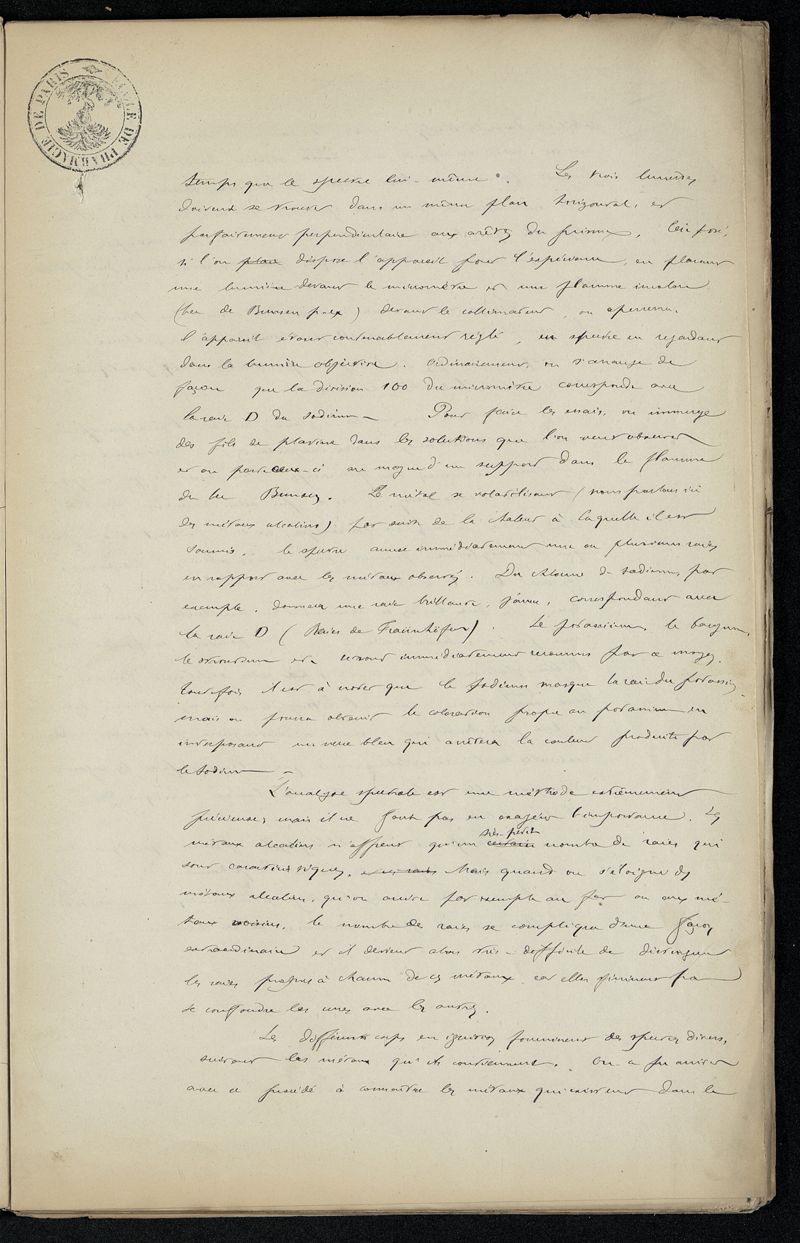 ÉCOLE DE PHARMACIE DE PARIS
temps que le spectre lui-même. Les trois lumières
doivent se trouver dans un même plan horizontal, et
parfaitement perpendiculaire aux arêtes du prisme. Ceci posé,
si l'on place dispose l'appareil pour l'expérience, en plaçant
une lumière devant le micromètre et une flamme incolore
(bec de Bunsen p. ex) devant le collimateur, on apercevra,
l'appareil étant convenablement réglé, un spectre en regardant
dans la lunette objective. Ordinairement, on s'arrange de
façon que la division 100 du micromètre corresponde avec
la raie D du sodium — Pour faire les essais, on immerge
des fils de platine dans les solutions que l'on veut observer
et on porte ceux-ci au moyen d'un support dans la flamme
du bec Bunsen. Le métal se volatilisant (nous parlons ici
des métaux alcalins) par suite de la chaleur à laquelle il est
soumis, le spectre accuse immédiatement une ou plusieurs raies
en rapport avec les métaux observés. Du chlorure de sodium, par
exemple, donnera une raie brillante, jaune, correspondant avec
la raie D (Raies de Fraünhöffer). Le potassium, le baryum,
le strontium etc. seront immédiatement reconnus par ce moyen.
Toutefois il est à noter que le sodium masque la raie du potassium
mais on pourra obtenir la coloration propre au potassium en
interposant un verre bleu qui arrêtera la couleur produite par
le sodium —
L'analyse spectrale est une méthode extrêmement
précieuse, mais il ne faut pas en exagérer l'importance. Les
très-petit
métaux alcalins n'offrent qu'un certain nombre de raies qui
sont caractéristiques. Mais quand on s'éloigne des
métaux alcalins, qu'on arrive par exemple au fer ou aux mé-
taux voisins, le nombre de raies se complique d'une façon
extraordinaire et il devient alors très-difficile de distinguer
les raies propres à chacun de ces métaux, car elles finissent par
se confondre les unes avec les autres.
Les différents corps en ignition fournissent des spectres divers,
suivant les métaux qu'ils contiennent. On a pu arriver
avec ce procédé à connaître les métaux qui existent dans le